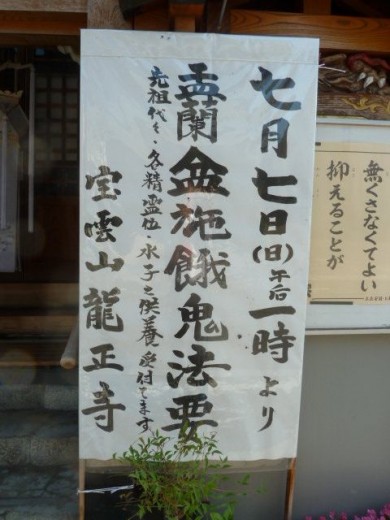 七月七日(日)午后一時より
盂蘭盆施餓鬼法要
先祖代々・各精霊位・水子之供養受付てます
宝雲山龍正寺
無くさなくてよい
抑えることが